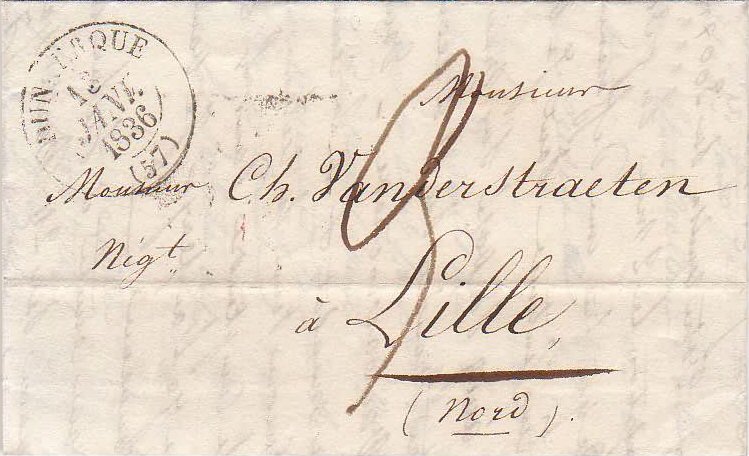 DUNKERQUE
13
JANV.
1836
(57)
3
Monsieur
Monsieur Ch. Vanderstraeten
Négt.
à Lille,
(Nord).